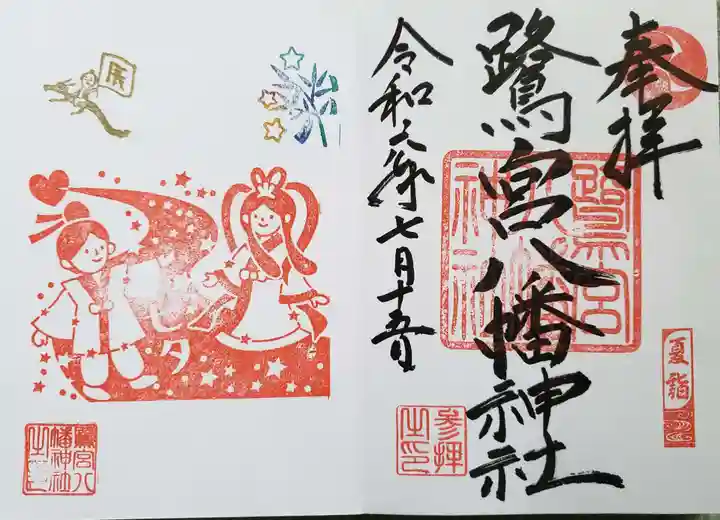 奉拝
鷺宮八幡神社
令和六年七月十五日
夏詣
参拝之印
鷺宮八幡神社
七夕
鷺宮八幡神社之印
辰